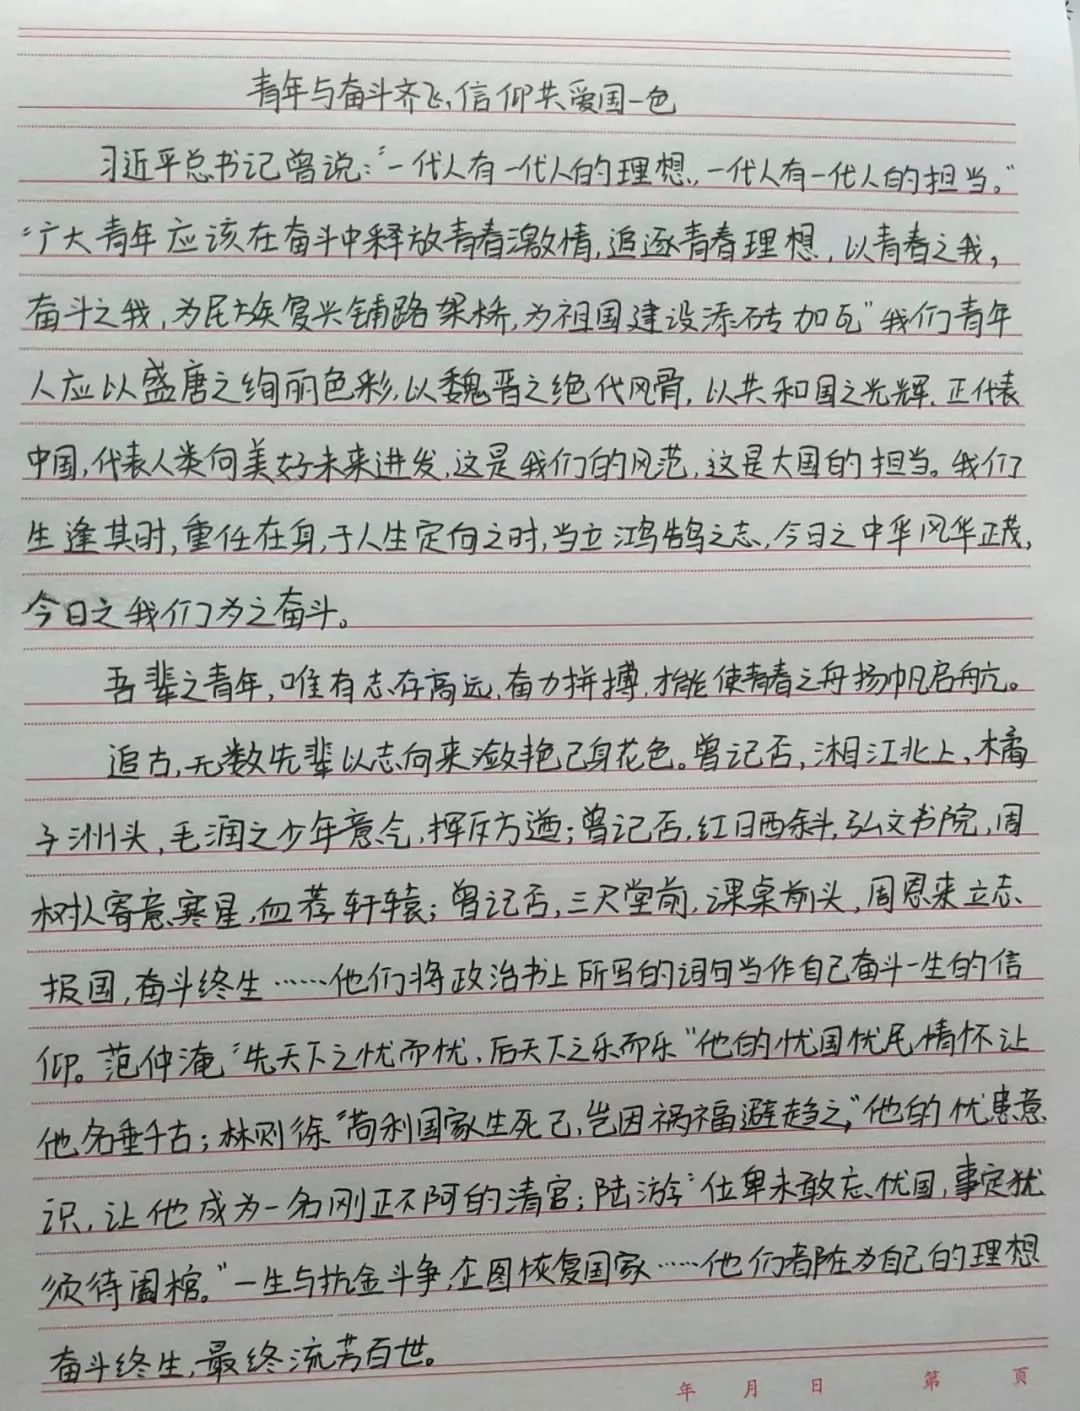 青年与奋斗齐飞,信仰共爱国一色
习近平总书记曾说:“一代人有一代人的理想,一代人有一代人的担当。”
“广大青年应该在奋斗中释放青春激情,追逐青春理想,以青春之我,
奋斗之我,为民族复兴铺路架桥,为祖国建设添砖加瓦”我们青年
人应以盛唐之绚丽色彩,以魏晋之绝代风骨,以共和国之光辉.正代表
中国,代表人类向美好未来进发,这是我们的风范,这是大国的担当。我们
生逢其时,重任在身,于人生定向之时,当立鸿鹄之志,今日之中华风华正茂,
今日之我们为之奋斗。
吾辈之青年,唯有志存高远,奋力拼搏,才能使青春之舟扬帆启航。
追古,无数先辈以志向来潋艳己身花色。曾记否,湘江北上,橘
子洲头,毛润之少年意气,挥斥方遒;曾记否,红日西斜,弘文书院,周
树人寄意寒星,血荐轩辕;曾记否,三尺堂前,课桌前头,周恩来立志
报国,奋斗终生……他们将政治书上所写的词句当作自己奋斗一生的信
仰。范仲淹“先天下之忧而忧,后天下之乐而乐”他的忧国忧民情怀让
他名垂千古;林则徐“苟利国家生死己,岂因祸福避趋之,”他的忧患意
识,让他成为一名刚正不阿的清官;陆游“位卑未敢忘忧国,事定犹
须待阖棺。”一生与抗金斗争,企图恢复国家……他们都在为自己的理想
奋斗终生,最终流芳百世。
年 月 日 第 頁